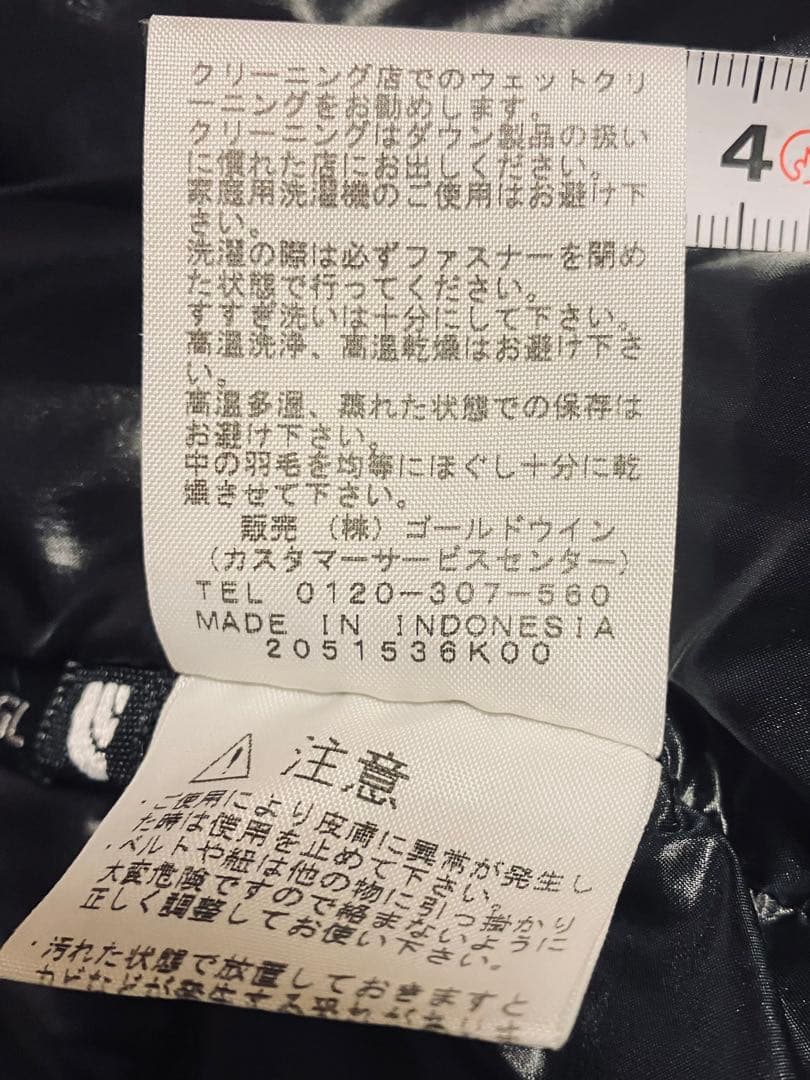 クリーニング店でのウェットクリ
ーニングをお勧めします。
クリーニングはダウン製品の扱い
に慣れた店にお出しください。
家庭用洗濯機のご使用はお避け下
さい。
洗濯の際は必ずファスナーを閉め
た状態で行ってください。
すすぎ洗いは十分にして下さい。
高温洗浄、高温乾燥はお避け下さ
い。
高温多湿、蒸れた状態での保存は
お避け下さい。
中の羽毛を均等にほぐし十分に乾
燥させて下さい。
販売 (株) ゴールドウイン
(カスタマーサービスセンター)
TEL 0120-307-560
MADE IN INDONESIA
2051536K00
4
GL
⚠ 注意
・ご使用により皮膚に異常が発生し
た時は使用を止めて下さい。
・ベルトや紐は他の物に引っ掛かり
大変危険ですので絡まないように
正しく調整してお使い下さい。
・汚れた状態で放置しておきますと
カビなどが発生する恐れがあいま